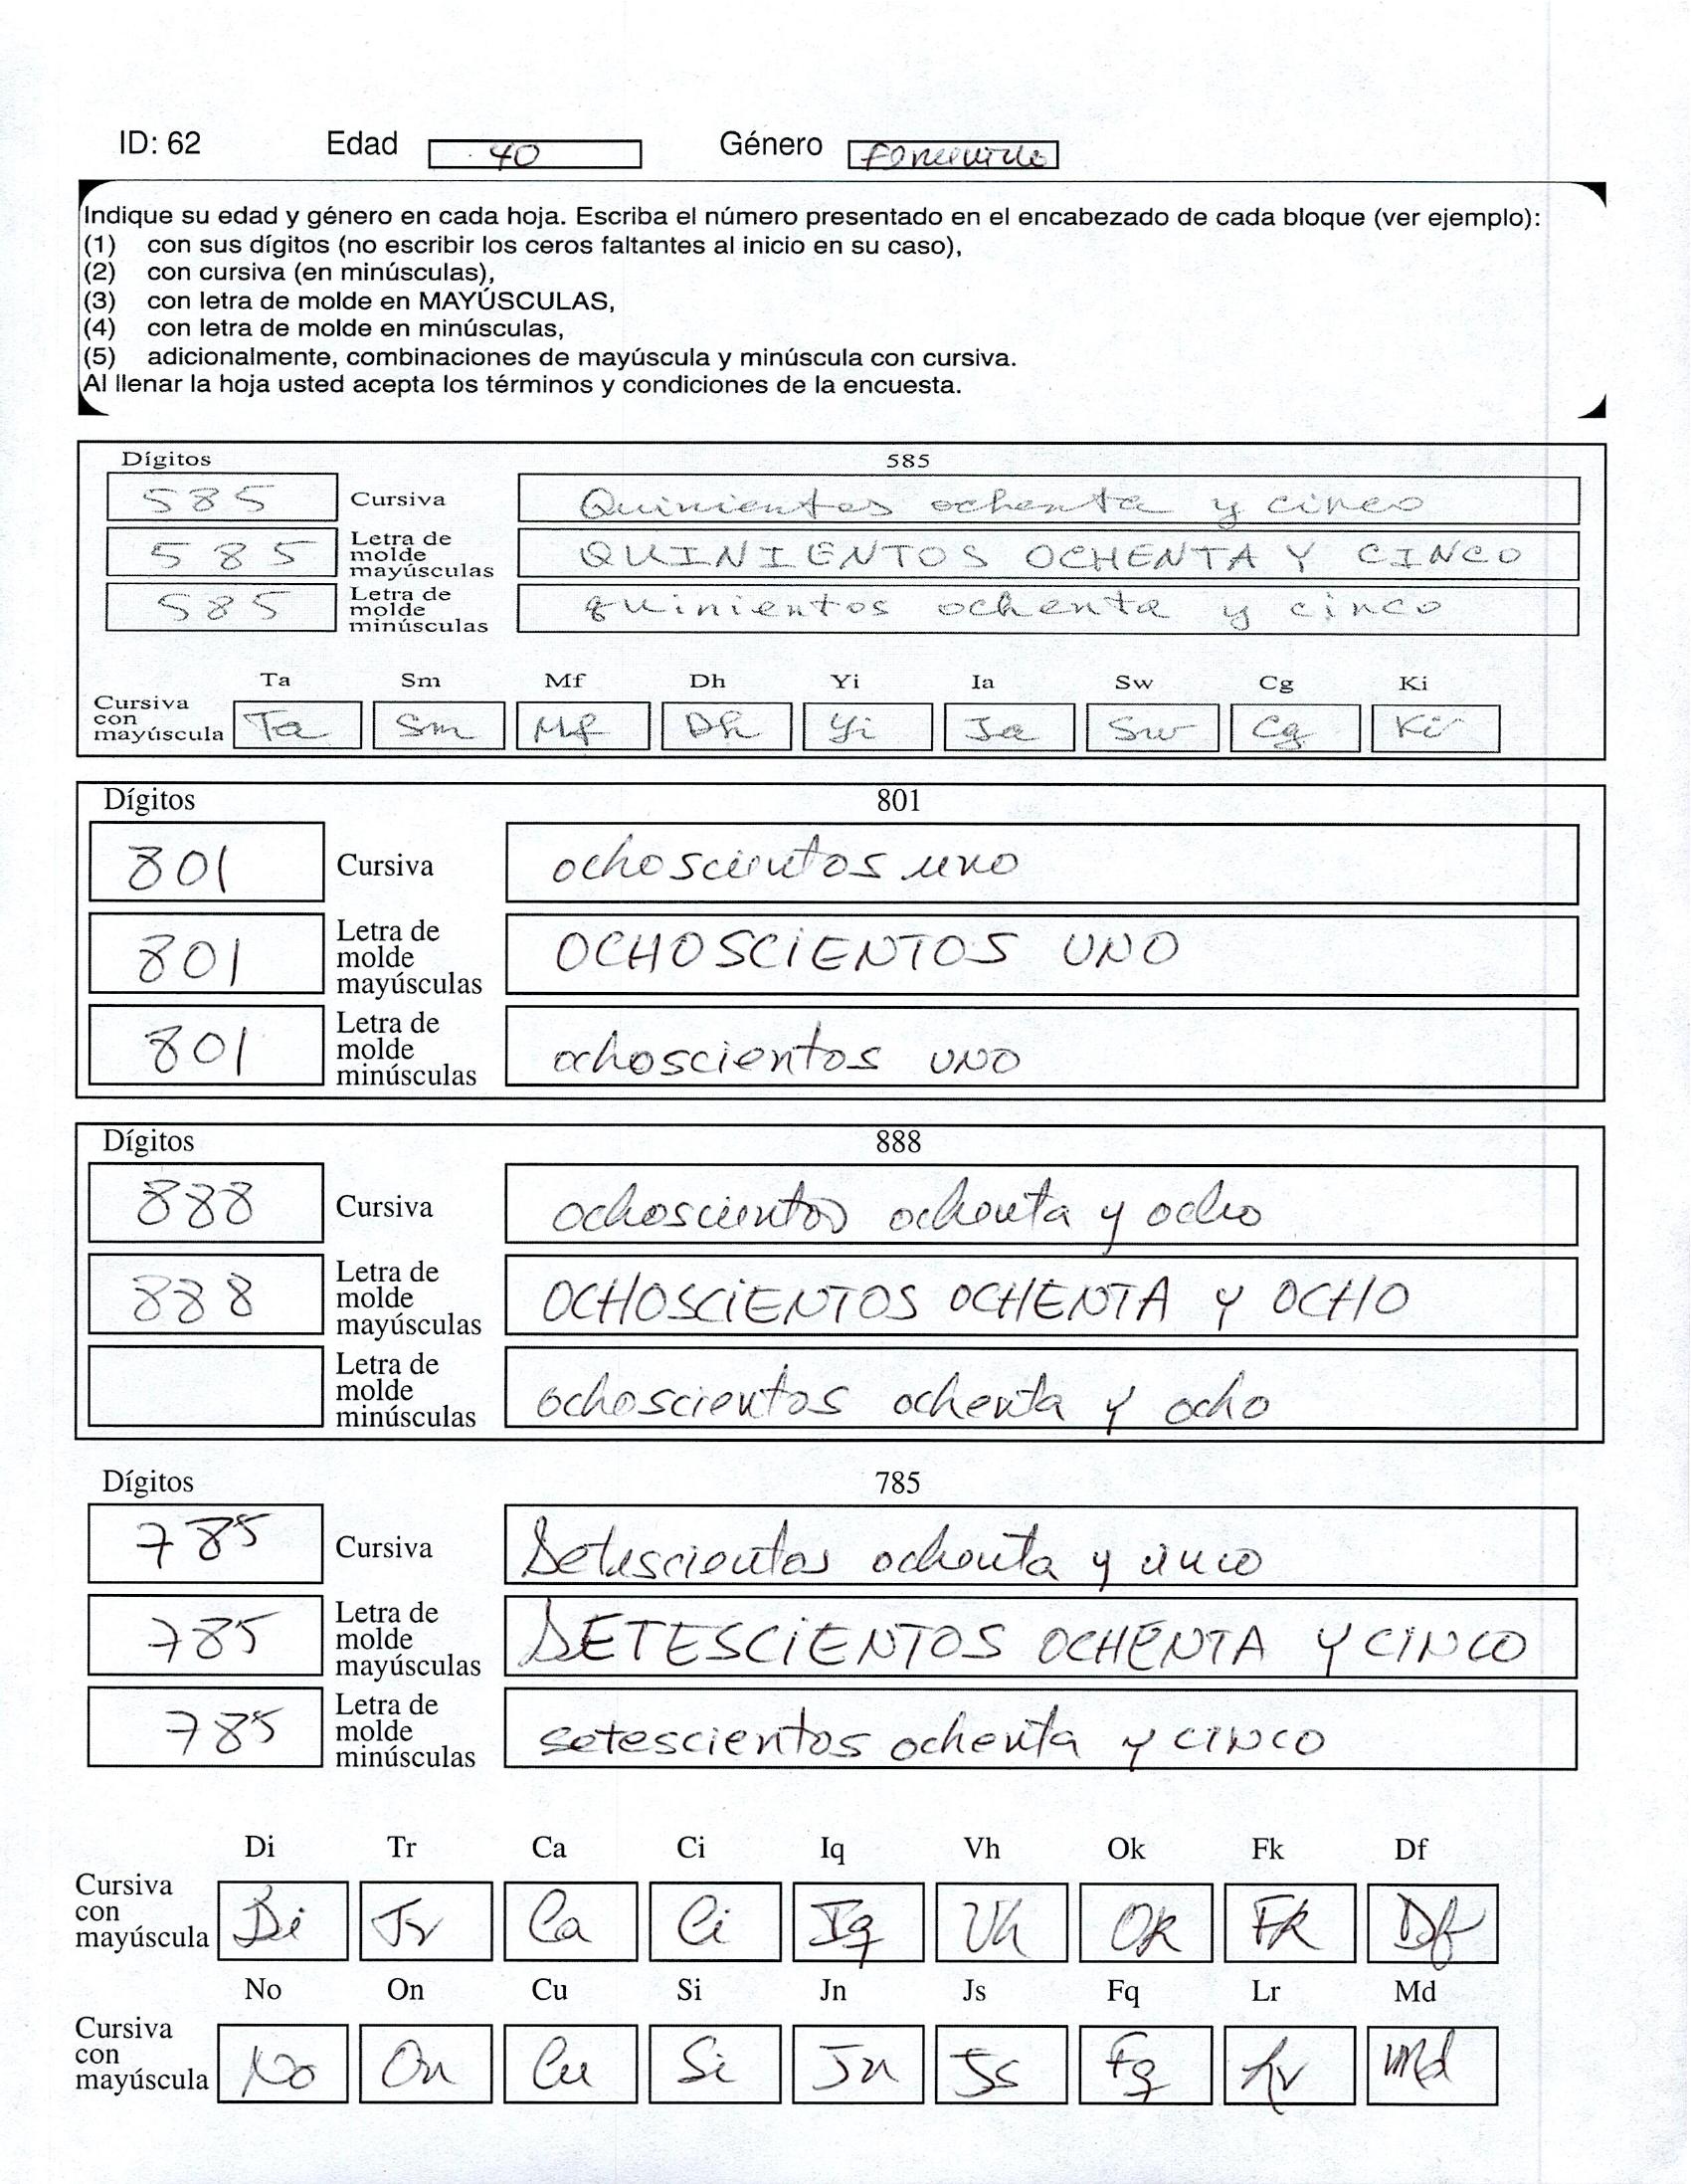 ID: 62 Edad 40 Género
Indique su edad y género en cada hoja. Escriba el número presentado en el encabezado de cada bloque (ver ejemplo):
(1) con sus dígitos (no escribir los ceros faltantes al inicio en su caso),
(2) con cursiva (en minúsculas),
(3) con letra de molde en MAYÚSCULAS,
(4) con letra de molde en minúsculas,
(5) adicionalmente, combinaciones de mayúscula y minúscula con cursiva.
Al llenar la hoja usted acepta los términos y condiciones de la encuesta.
Dígitos 585
585 Cursiva Quinientos ochenta y cinco
585 Letra de molde mayúsculas QUINIENTOS OCHENTA Y CINCO
585 Letra de molde minúsculas quinientos ochenta y cinco
Ta Sm Mf Dh Yi Ia Sw Cg Ki
Cursiva con mayúscula Ta Sm Mf Dh Yi Ia Sw Cg Ki
Dígitos 801
801 Cursiva ochoscientos uno
801 Letra de molde mayúsculas OCHOSCiENTOS UNO
801 Letra de molde minúsculas ochoscientos uno
Dígitos 888
888 Cursiva ochoscientos ochenta y ocho
888 Letra de molde mayúsculas OCHOSCiENTOS OCHENTA Y OCHO
Letra de molde minúsculas ochoscientos ochenta y ocho
Dígitos 785
785 Cursiva Setescientos ochenta y cinco
785 Letra de molde mayúsculas SETESCiENTOS OCHENTA Y CINCO
785 Letra de molde minúsculas setescientos ochenta y cinco
Di Tr Ca Ci Iq Vh Ok Fk Df
Cursiva con mayúscula Di Tr Ca Ci Iq Vh Ok Fk Df
No On Cu Si Jn Js Fq Lr Md
Cursiva con mayúscula No On Cu Si Jn Js Fq Lr Md